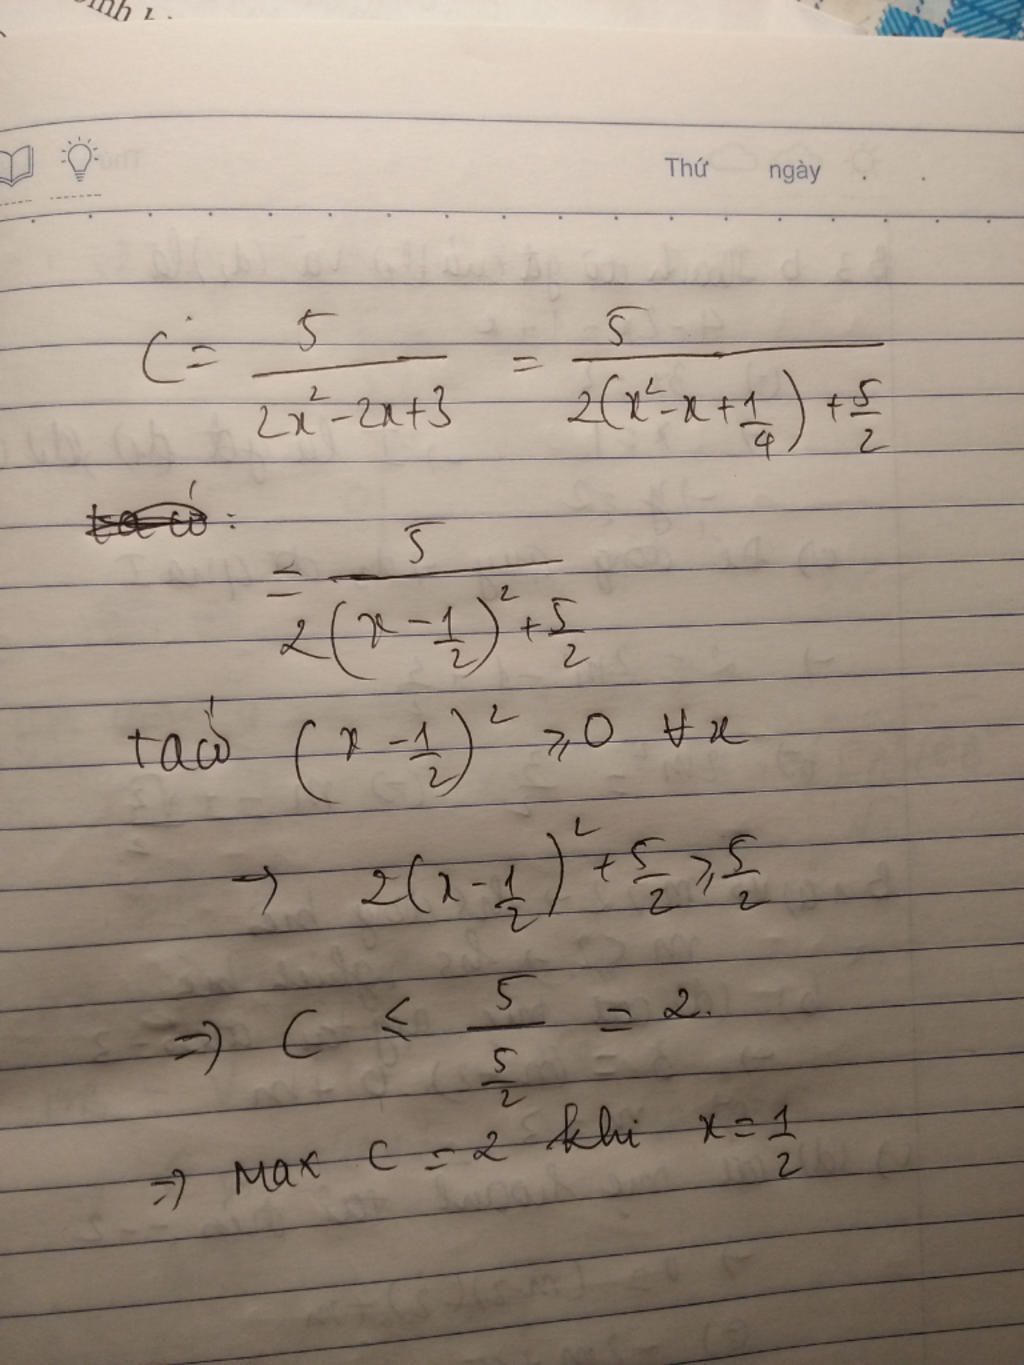 Thứ ngày
C = 5/(2x² - 2x + 3) = 5/(2(x² - x + 1/4) + 5/2)
= 5/(2(x - 1/2)² + 5/2)
ta có (x - 1/2)² ⩾ 0 ∀x
→ 2(x - 1/2)² + 5/2 ⩾ 5/2
⇒ C ≤ 5/(5/2) = 2.
⇒ Max C = 2 khi x = 1/2